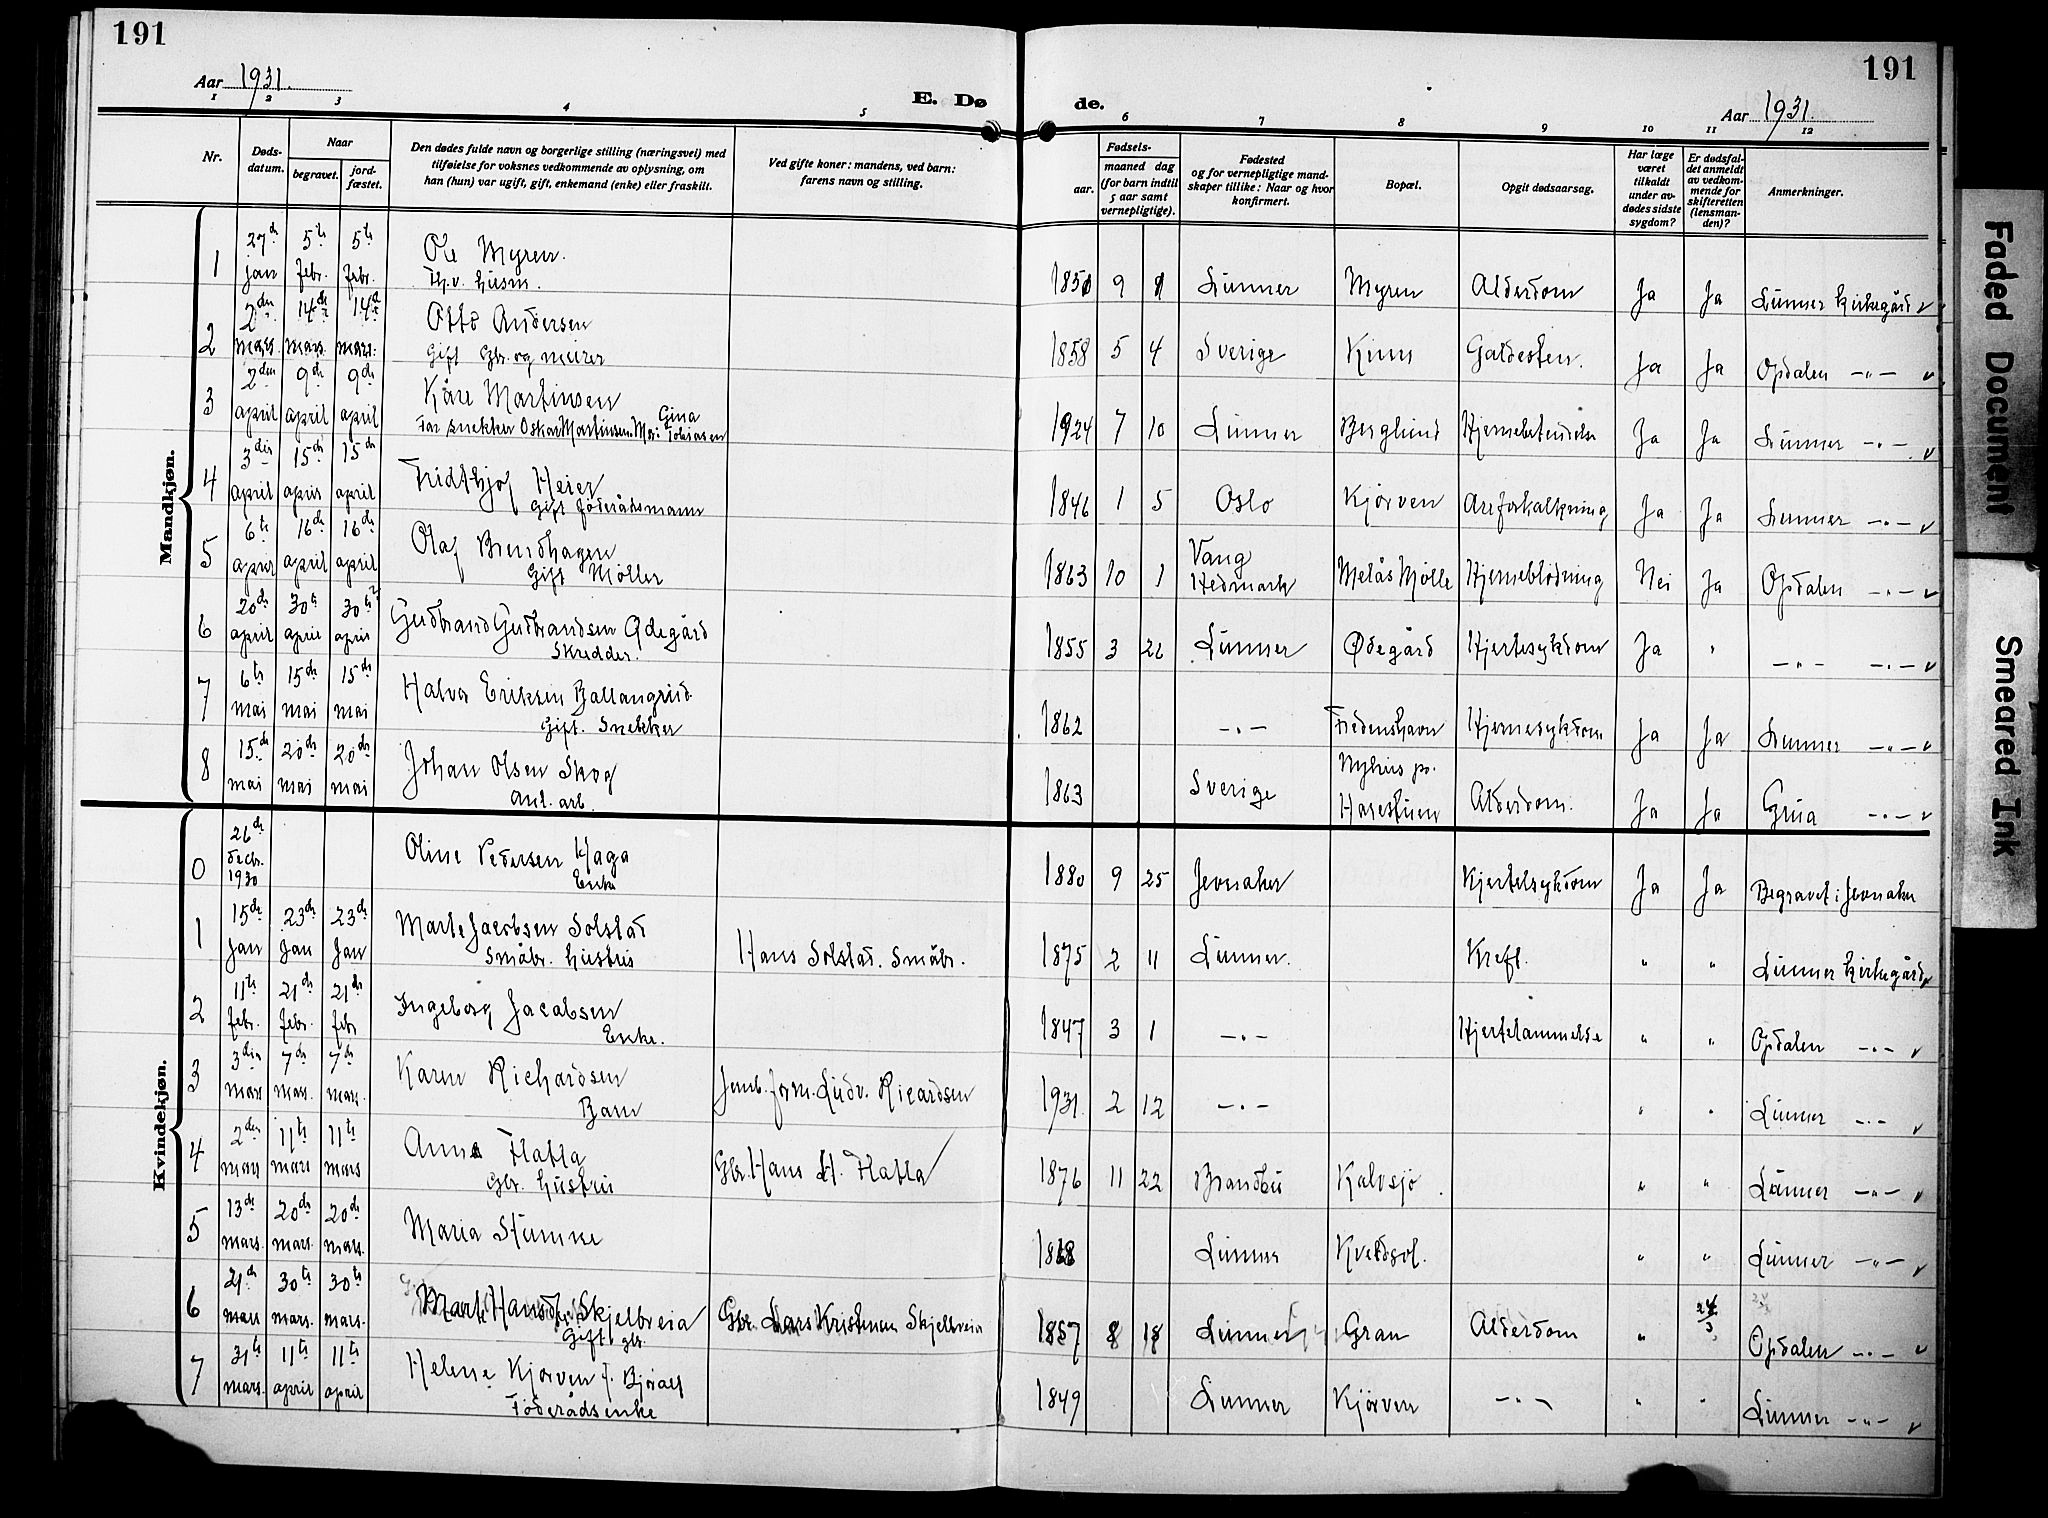 191
191
Aar 1931.
E. Dø de.
Aar 1931.
1 2 3 4 5 6 7 8 9 10 11 12
Nr.
Døds-
datum.
Naar
begravet.
jord-
fæstet.
Den dødes fulde navn og borgerlige stilling (næringsvei) med
tilføielse for voksnes vedkommende av oplysning, om
han (hun) var ugift, gift, enkemand (enke) eller fraskilt.
Ved gifte koner: mandens, ved barn:
farens navn og stilling.
Fødsels-
aar.
maaned dag
(for barn indtil
5 aar samt
vernepligtige).
Fødested
og for vernepligtige mand-
skaper tillike: Naar og hvor
konfirmert.
Bopæl.
Opgit dødsaarsag.
Har læge
været
tilkaldt
under av-
dødes sidste
sygdom?
Er dødsfal-
det anmeldt
av vedkom-
mende for
skifteretten
(lensman-
den)?
Anmerkninger.
Mandkjøn.
1 27de jan 5te febr. 5te febr. Ole Myren. 1851 9 Lunner Myren Alderdom Ja Ja Lunner Kirkegård
2 2den mars. 14de mars. 14de mars. Otto Andersen
Gift Gbr. og meirer 1858 5 4 Sverige Galdesten. Ja Ja Opdalen -"-
3 2den april 9de april 9de april Kåre Martinsen
Far snekker Oskar Martinsen Mor Gina Tobiasen 1924 7 10 Lunner Berglund Hjernebetendelse Ja Ja Lunner -"-
4 3die april 15de april 15de april Fridthjof Heier
Gift föderådsmann 1846 1 5 Oslo Kjörven Areforkalkning Ja Ja Lunner -"-
5 6te april 16de april 16de april Olaf Brendhagen
Gift Möller 1863 10 1 Vang Hedmark Melås Mölle Hjerneblödning Nei Ja Opdalen -"-
6 20de april 30te april 30te april Gudbrand Gudbrandsen Ödegård
Skredder. 1855 3 22 Lunner Ødegård Hjertesykdom Ja " -"- -"-
7 6te mai 15de mai 15de mai Halvor Eriksen Ballangrud
Gift. Snekker 1862 -"- Fredenshavn Hjernesykdom Ja Ja Lunner -"-
8 15de mai 20de mai 20de mai Johan Olsen Skog
Anl. arb. 1863 Sverige Nyhus pr. Harestuen Alderdom. Ja Ja Grua -"-
Kvindekjøn.
0 26de decbr. 1930 Oline Pedersen Haga
Enke 1880 9 25 Jevnaker Hjertesykdom Ja Ja Begravet i Jevnaker
1 15de Jan 23de Jan 23de Jan Marte Jacobsen Solstad
Småbr. hustru Hans Solstad. Småbr. 1875 2 11 Lunner. Kreft. " " Lunner Kirkegård
2 11te febr. 21de febr. 21de febr Ingeborg Jacobsen
Enke. 1847 3 1 -"- Hjertelammelse " " Opdalen -"-
3 3die mars 7de mars. 7de mars. Karen Richardsen
Barn Jernb. form. Ludv. Ricardsen 1931 2 12 -"- " " Lunner -"-
4 2den mars 11te mars 11te mars Anna Flatla
Gbr. hustru Gbr. Hans H. Flatla 1876 11 22 Brandbu Kalvsjö " " Lunner -"-
5 13de mars. 20de mars. 20de mars. Maria Stumne 1868 Lunner Kveldsol. " " Lunner -"-
6 21de mars 30te mars. 30te mars. Marte Hansdtr. Skjelbreia
Gift gbr. Gbr Lars Kristensen Skjelbreia 1857 8 18 Lunner Gran Alderdom " 24/3 Opdalen -"-
7 31te mars. 11te april 11te april Helene Kjörven f. Björalt
Föderådsenke 1849 Lunner Kjörven -"- " " Lunner -"-
Faded Document
Smeared Ink